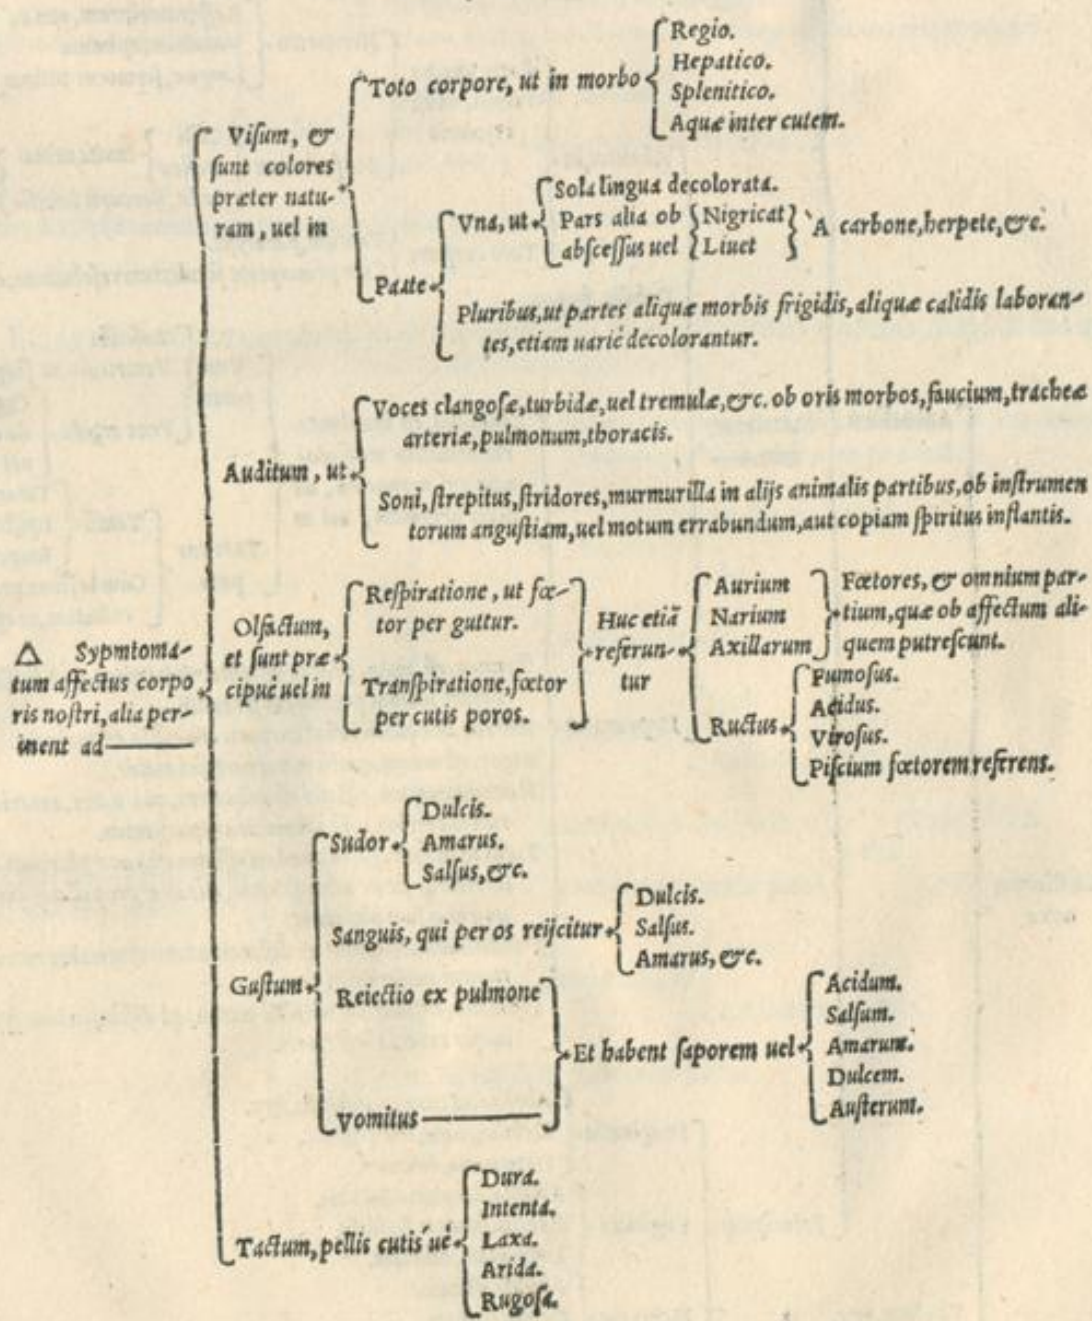 △ Sypmtoma-
tum affectus corpo
ris nostri, alia per-
inent ad
Visum, &
sunt colores
præter natu-
ram, uel in
Toto corpore, ut in morbo
Regio.
Hepatico.
Splenitico.
Aquæ inter cutem.
Paate
Vna, ut
Sola lingua decolorata.
Pars alia ob
abscessus uel
Nigricat
Liuet
A carbone, herpete, &c.
Pluribus, ut partes aliquæ morbis frigidis, aliquæ calidis laboran-
tes, etiam uariè decolorantur.
Auditum, ut
Voces clangosæ, turbidæ, uel tremulæ, &c. ob oris morbos, faucium, tracheæ
arteriæ, pulmonum, thoracis.
Soni, strepitus, stridores, murmurilla in alijs animalis partibus, ob instrumen
torum angustiam, uel motum errabundum, aut copiam spiritus inflantis.
Olfactum,
et sunt præ
cipuè uel in
Respiratione, ut fœ-
tor per guttur.
Transpiratione, fœtor
per cutis poros.
Huc etiã
referun-
tur
Aurium
Narium
Axillarum
Fœtores, & omnium par-
tium, quæ ob affectum ali-
quem putrescunt.
Ructus
Fumosus.
Acidus.
Virosus.
Piscium fœtorem referens.
Gustum
Sudor
Dulcis.
Amarus.
Salsus, &c.
Sanguis, qui per os reijcitur
Dulcis.
Salsus.
Amarus, &c.
Reiectio ex pulmone
Vomitus
Et habent saporem uel
Acidum.
Salsum.
Amarum.
Dulcem.
Austerum.
Tactum, pellis cutis'uè
Dura.
Intenta.
Laxa.
Arida.
Rugosa.